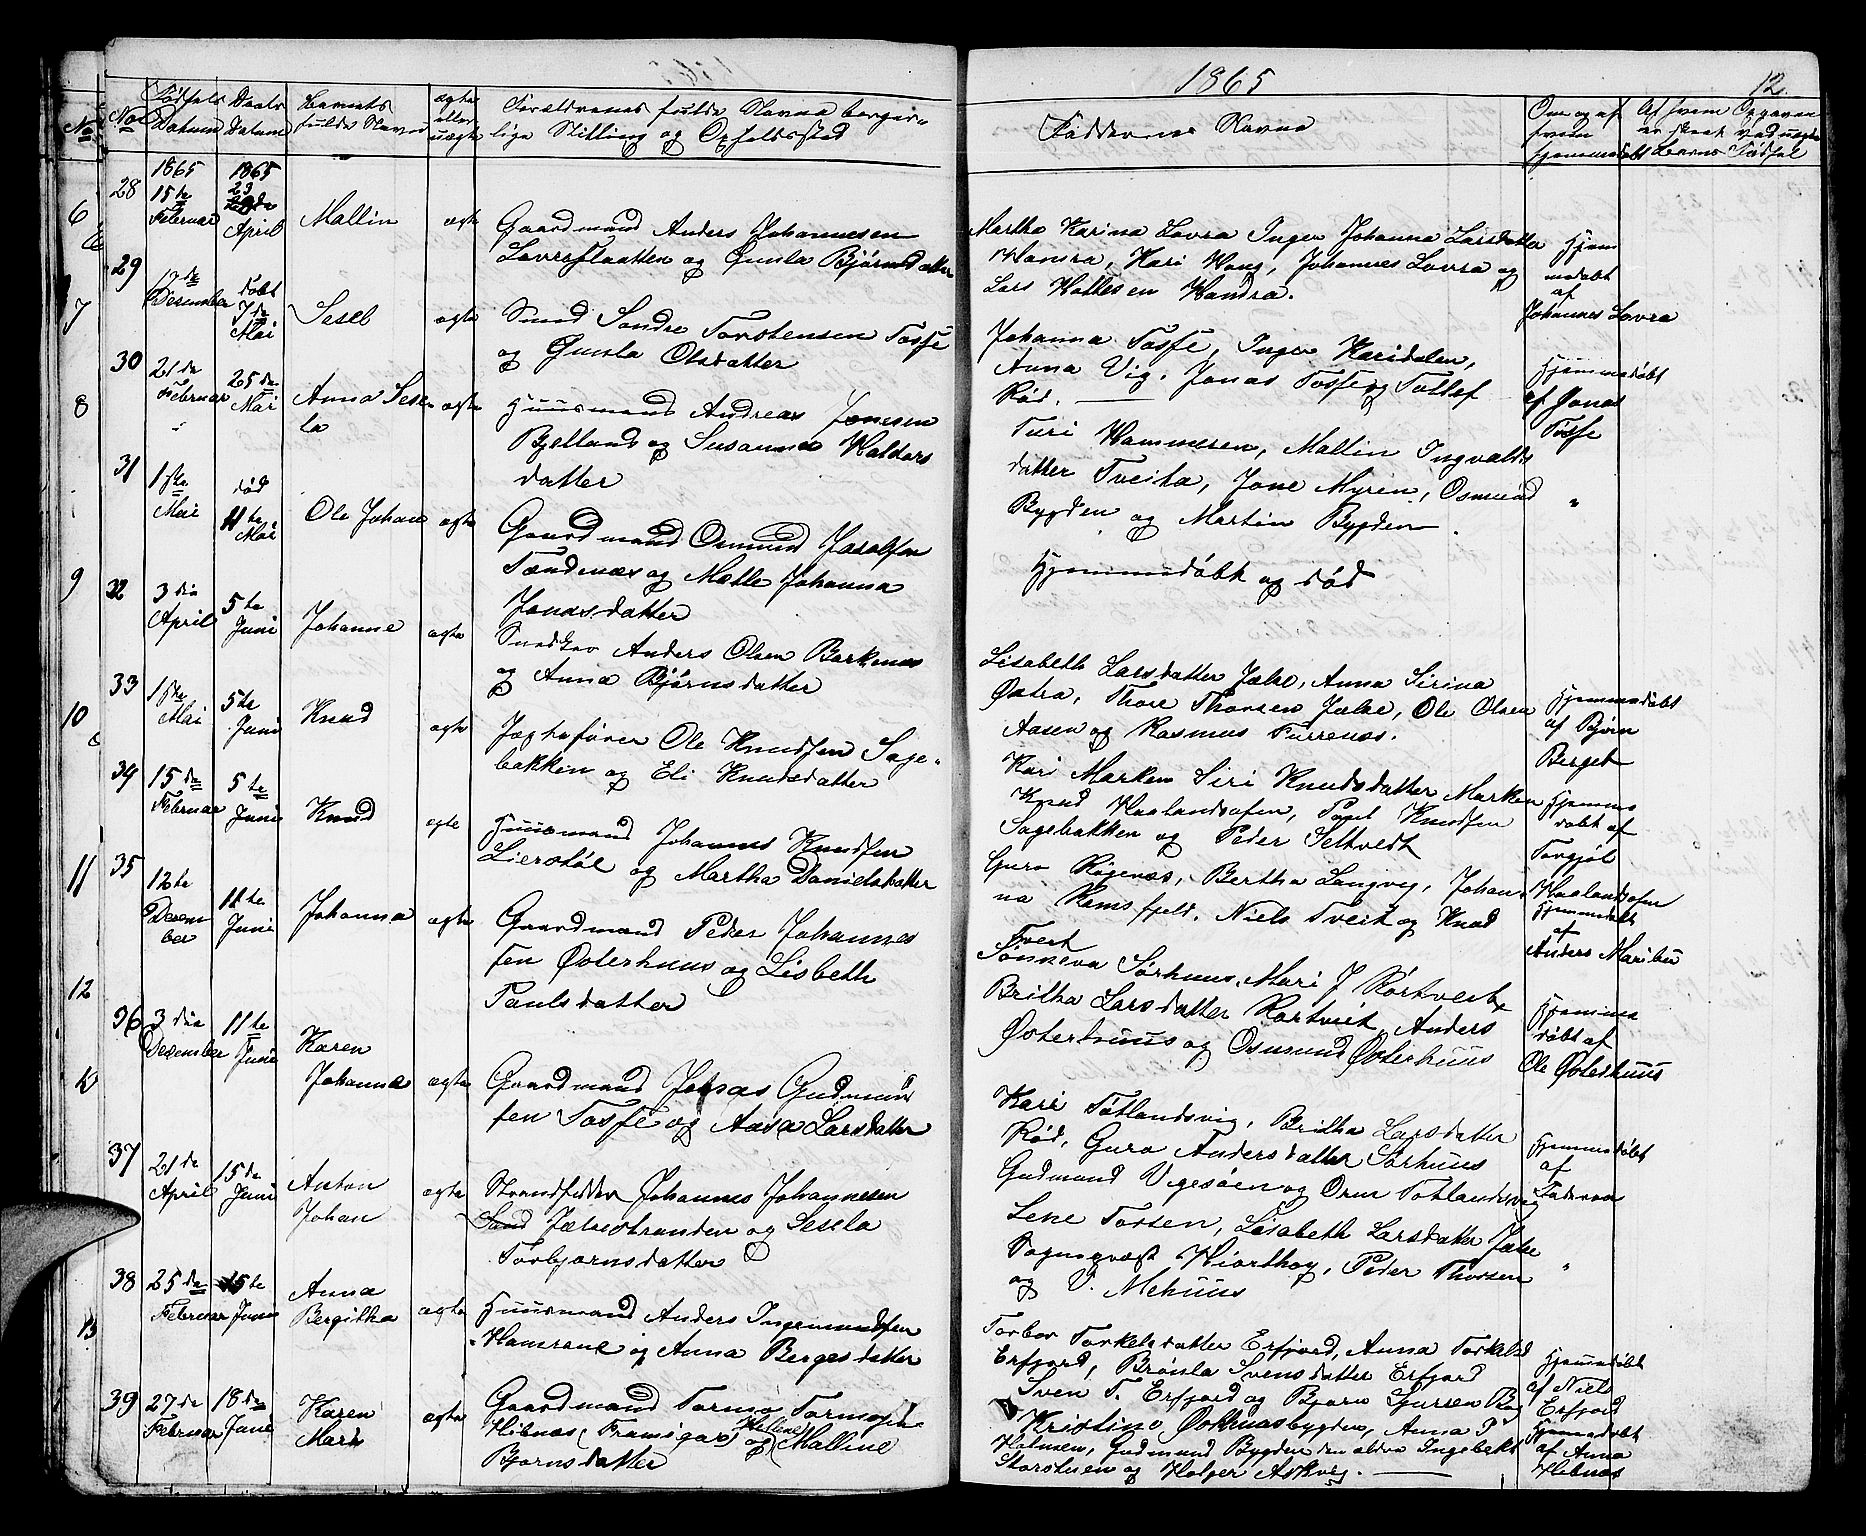 1865
12
No
No
Fødsels Datum
Daabs Datum
Barnets fulde Navn
ægte eller uægte
Forældrenes fulde Navne borger-
lige Stilling og Opholdssted
Faddernes Navne
Om og af hvem hjemmedøbt
Af hvem Opgaven er skeet ved uægte Barns Fødsel
1865
1865
6
28
15te Februar
23 April
Mallin
ægte
Gaardmand Anders Johannesen
Lovraflaatten og Gunla Bjørnsdatter
Martha Karina Lovra Inger Johanna Larsdatter
Handra, Kari Haug, Johannes Lovra og
Lars Handra.
Hjem
medøbt
af
Johannes Lovra
7
29
17de Desember
døbt
7de Mai
Seseb
ægte
Smed Sondre Torstensen Tosfe
og Gunla Olsdatter
Johanna Tosfe, Inger Karidalen,
Anna Vig, Jonas Tosfe og Tollef
Rød.
Hjemmedøbt
af Jonas
Tosfe
8
30
21de Februar
25de Mai
Anna Sese-
la
ægte
Huusmand Andreas Jonesen
Bjelland og Susanna Haldors
datter
Turi Hammersen, Mallin Ingvalds
datter Tveita, Jone Myren, Osmund
Bygden og Martin Bygden
"
31
1ste Mai
død
11te Mai
Ole Johan
ægte
Gaardmand Osmund
og Mætte Johanna
Jonasdatter
Hjemmedøbt og død
9
32
3die April
5te Juni
Johanne
ægte
Snedker Anders Olsen Barkenæs
og Anna Bjørnsdatter
Lisabeth Larsdatter Jælse, Anna Serina
Østra, Thore Thorsen Jælse, Ole Olsen
Aasen og Rasmus Furrenæs.
Hjemmedøbt
af Bjørn
Berget
10
33
1ste Mai
5te Juni
Knud
ægte
Jægtefører Ole Knudsen Sage-
bakken og Eli Knudsdatter
Kari Marken Siri Knudsdatter Marken
Knud Haalandsosen, Poul Knudsen
Sagebakken og Peder Seltvedt
Hjemme
døbt af
Torgjøl
Haalandsosen
34
15de Februar
5te Juni
Knud
ægte
Huusmand Johannes Knudsen
Lierstøl og Martha Danielsdatter
Guro Røgenæs, Bertha Langvig, Johan
na Ramsfjeld, Niels Tveit og Knud
Tveit
Hjemmedøbt
af
Anders Maribu
11
35
12te Desem
ber
11te Juni
Johanna
ægte
Gaardmand Peder Johannes
sen Østerhuus og Lisbeth
Paulsdatter
Sønneva Sørhuus, Mari J Kørtveit
Britha Larsdatter Kartveit, Anders
Østerhuus og Osmund Østerhuus
Hjemme
døbt af
Ole Østerhuus
12
36
3die Desember
11te Juni
Karen
Johanna
ægte
Gaardmand Jonas Gudmund
sen Tosfe og Aasa Larsdatter
Kari Totlandsvig, Britha Larsdatter
Rød, Guro Andersdatter Sørhuus
Gudmund Vigesøen og Orm Totlandsvig
Hjemmedøbt
af
Faderen
37
21de April
15de Juni
Anton
Johan
ægte
Strandsidder Johannes Johannesen
Jælsestranden og Sesela
Torbjørnsdatter
Lene Torsen, Lisabeth Larsdatter Jælse
Sognepræst Hiorthoy, Peder Thorsen
og V. Mehuus
"
38
25de Februar
15te Juni
Anna
Bergitha
ægte
Huusmand Anders Ingemundsen
Hamrene og Anna Bergesdatter
Torbor Torkelsdatter Erfjord, Anna Torkelsd
Erfjord, Brønla Svensdatter Erfjord
Sven T. Erfjord og Bjørn
Hjemmedøbt
af Niels
Erfjord
13
39
27de Februar
18de Juni
Karen
Marte
ægte
Gaardmand Tormo Tormosen
Hebnæs og Malline
Bjørnsdatter
Kristine Østhusbygden, Anna P
Holmen, Gudmund Bygden den ældre Ingebrekt
Storstuen og Holger Askvig.
Hjemmedøbt
af Anna
Hebnæs